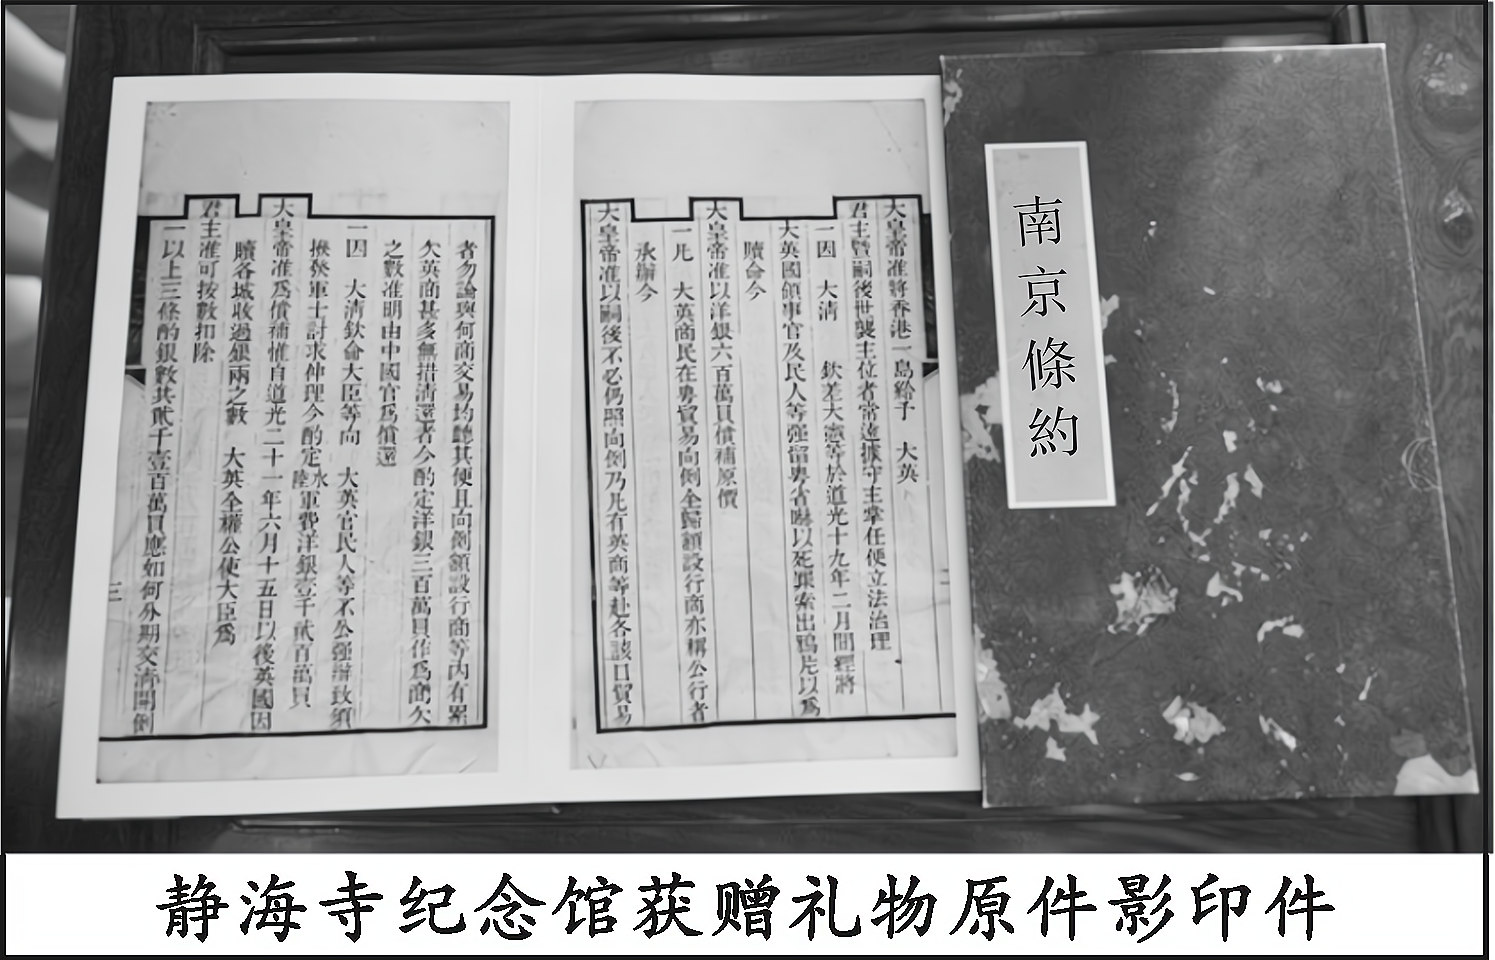 南京條約
大皇帝准將香港一島給予　大英
君主暨嗣後世襲主位者常遠據守主掌任便立法治理
一因　大清　欽差大憲等於道光十九年二月間經將
大英國領事官及民人等强留粵省嚇以死罪索出鴉片以爲
贖命今
大皇帝准以洋銀六百萬員償補原價
一凡　大英商民在粵貿易向例全歸額設行商亦稱公行者
承辦今
大皇帝准以嗣後不必仍照向例乃凡有英商等赴各該口貿易
者勿論與何商交易均聽其便且向例額設行商等內有累
欠英商甚多無措清還者今酌定洋銀三百萬員作爲商欠
之數准明由中國官爲償還
一因　大清欽命大臣等向　大英官民人等不公强辦致須
撥發軍士討求伸理今酌定水陸軍費洋銀壹千貳百萬員
大皇帝准爲償補惟自道光二十一年六月十五日以後英國因
贖各城收過銀兩之數　大英全權公使大臣爲
君主准可按數扣除
一以上三條酌銀數共貳千壹百萬員應如何分期交清開列
静海寺纪念馆获赠礼物原件影印件